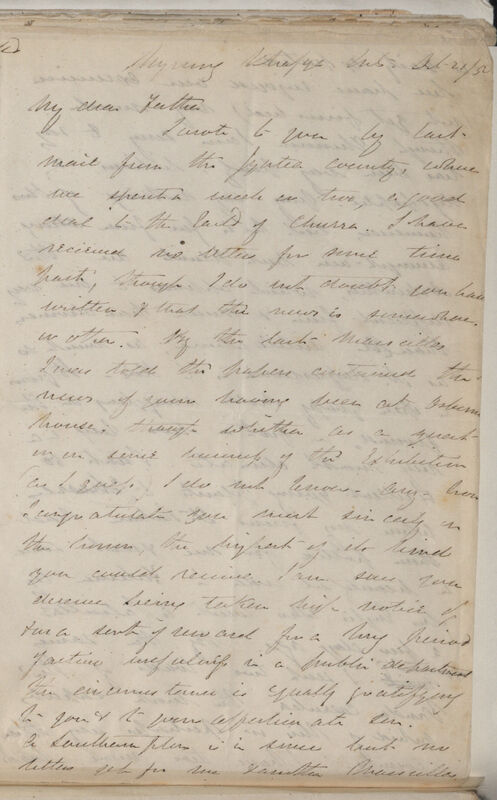 Myrung Khasya
My dear Father
I wrote to you by last
mail from the Jyntea country, where
we spent a week or two, a good
deal to the East of Churra. I have
recieved no letters for some time
past, though I do not doubt you have
written & that the news is somewhere
or other. By the last Marseilles
I was told the papers contained the
news of your having been at Osborne
house. though whether as a guest
or on some account of the Exhibition
I do not know. any how
I congratulate you most sincerely on
the honor the highest of its kind
you could receive. I am sure you
deserve being taken high notice of
as a sort of reward for a long period
of active usefulness in a public department
The circumstance is equally gratifying
to you & to your affectionate son.
A Southampton is in since but no
letters yet for me. Another Marseilles